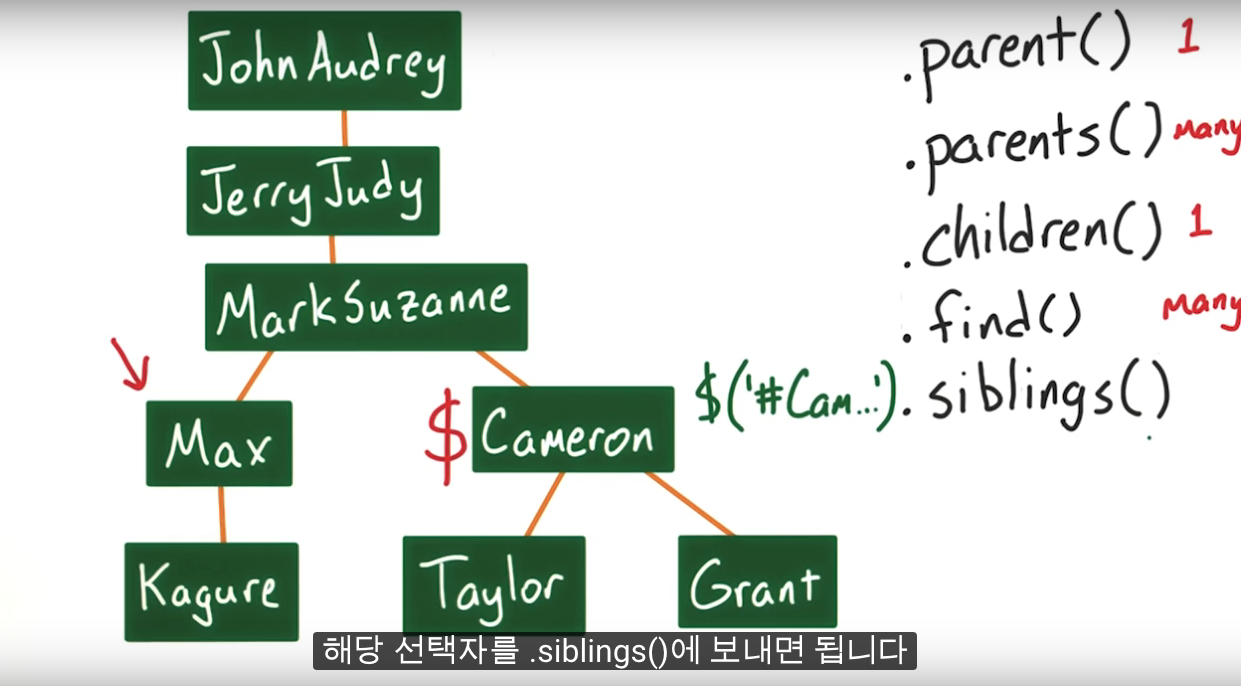 John Audrey
Jerry Judy
Mark Suzanne
Max
$ Cameron
Kagure
Taylor
Grant
.parent() 1
.parents() Many
.children() 1
.find() Many
$('#Cam...').siblings()
해당 선택자를 .siblings()에 보내면 됩니다